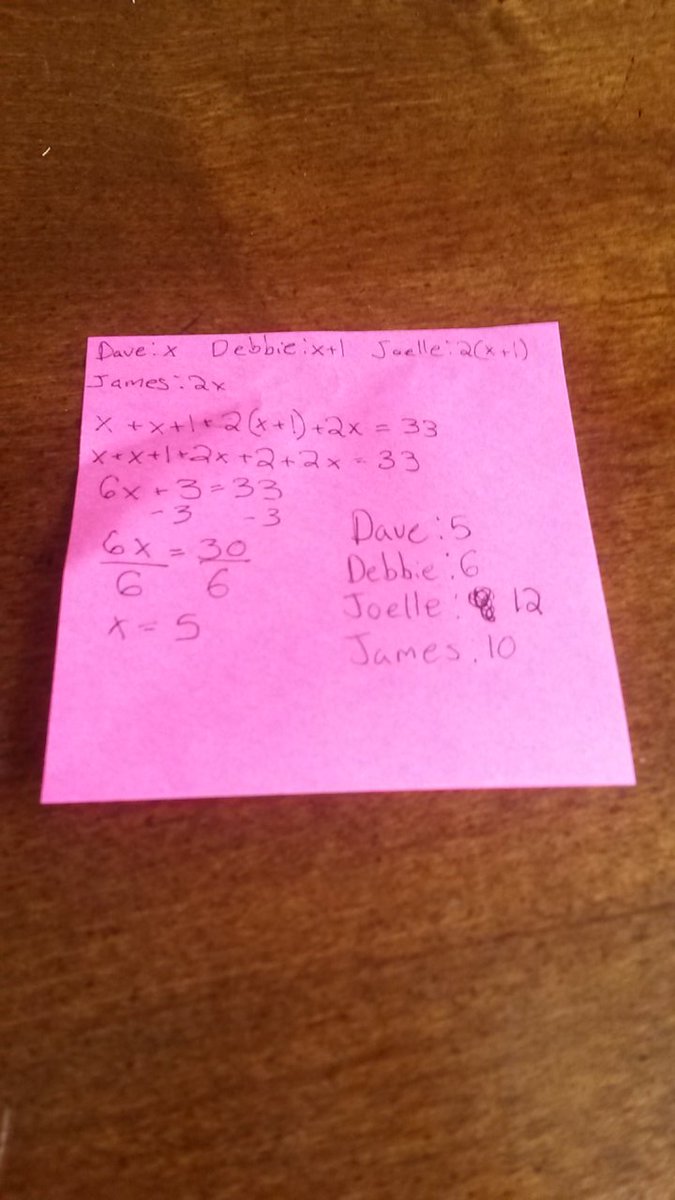 Dave: x Debbie: x+1 Joelle: 2(x+1)
James: 2x
x + x+1+ 2(x+1)+2x = 33
x+x+1+2x+2+2x = 33
6x + 3 = 33
-3 -3
6x = 30
6 6
x = 5
Dave: 5
Debbie: 6
Joelle: 12
James: 10